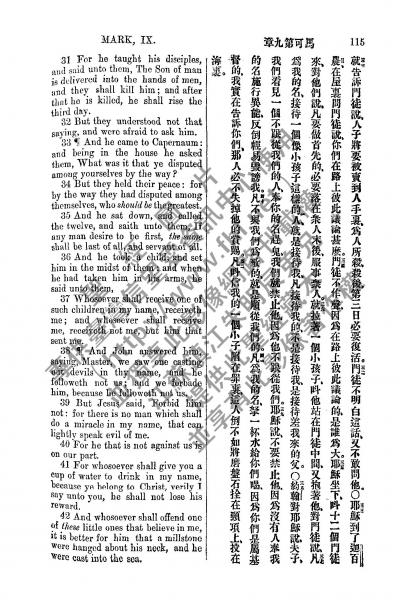 MARK, IX.
馬可第九章
115
31 For he taught his disciples,
and said unto them, The Son of man
is delivered into the hands of men,
and they shall kill him; and after
that he is killed, he shall rise the
third day.
32 But they understood not that
saying, and were afraid to ask him.
33 ¶ And he came to Capernaum:
and being in the house he asked
them, What was it that ye disputed
among yourselves by the way?
34 But they held their peace: for
by the way they had disputed among
themselves, who should be the greatest.
35 And he sat down, and called
the twelve, and saith unto them, If
any man desire to be first, the same
shall be last of all, and servant of all.
36 And he took a child, and set
him in the midst of them: and when
he had taken him in his arms, he
said unto them,
37 Whosoever shall receive one of
such children in my name, receiveth
me; and whosoever shall receive
me, receiveth not me, but him that
sent me.
38 ¶ And John answered him,
saying, Master, we saw one casting
out devils in thy name, and he
followeth not us; and we forbade
him, because he followeth not us.
39 But Jesus said, Forbid him
not: for there is no man which shall
do a miracle in my name, that can
lightly speak evil of me.
40 For he that is not against us is
on our part.
41 For whosoever shall give you a
cup of water to drink in my name,
because ye belong to Christ, verily I
say unto you, he shall not lose his
reward.
42 And whosoever shall offend one
of these little ones that believe in me,
it is better for him that a millstone
were hanged about his neck, and he
were cast into the sea.
就告訴門徒說人子將要被賣到人手裏爲人所殺殺後第三日必要復活門徒不明白這話又不敢問他○耶穌到了迦百
農在屋裏問門徒說你們在路上彼此議論甚麽門徒不作聲因爲在路上彼此議論的是誰爲大耶穌坐下叫十二個門徒
來對他們說凡要做首先的必要落在衆人末後服事衆人就拉著一個小孩子叫他站在門徒中間又抱著他對門徒說凡
爲我的名接待一個像小孩子這樣的人就是接待我凡接待我的不是接待我是接待差我來的父○約翰對耶穌說夫子
我們看見一個不跟從我們的人奉你的名趕鬼我們就禁止他因爲他不跟從我們耶穌說不要禁止他因爲沒有人奉我
的名施行異能反倒輕易毀謗我不與我們爲敵的就是跟從我們的凡爲我的名拏一杯水給你們喝因爲你們是屬基
督的我實在告訴你們那人必不失掉他的賞賜凡叫信我的一個小子陷在罪裏這人倒不如將磨盤石拴在頸項上投在
海裏